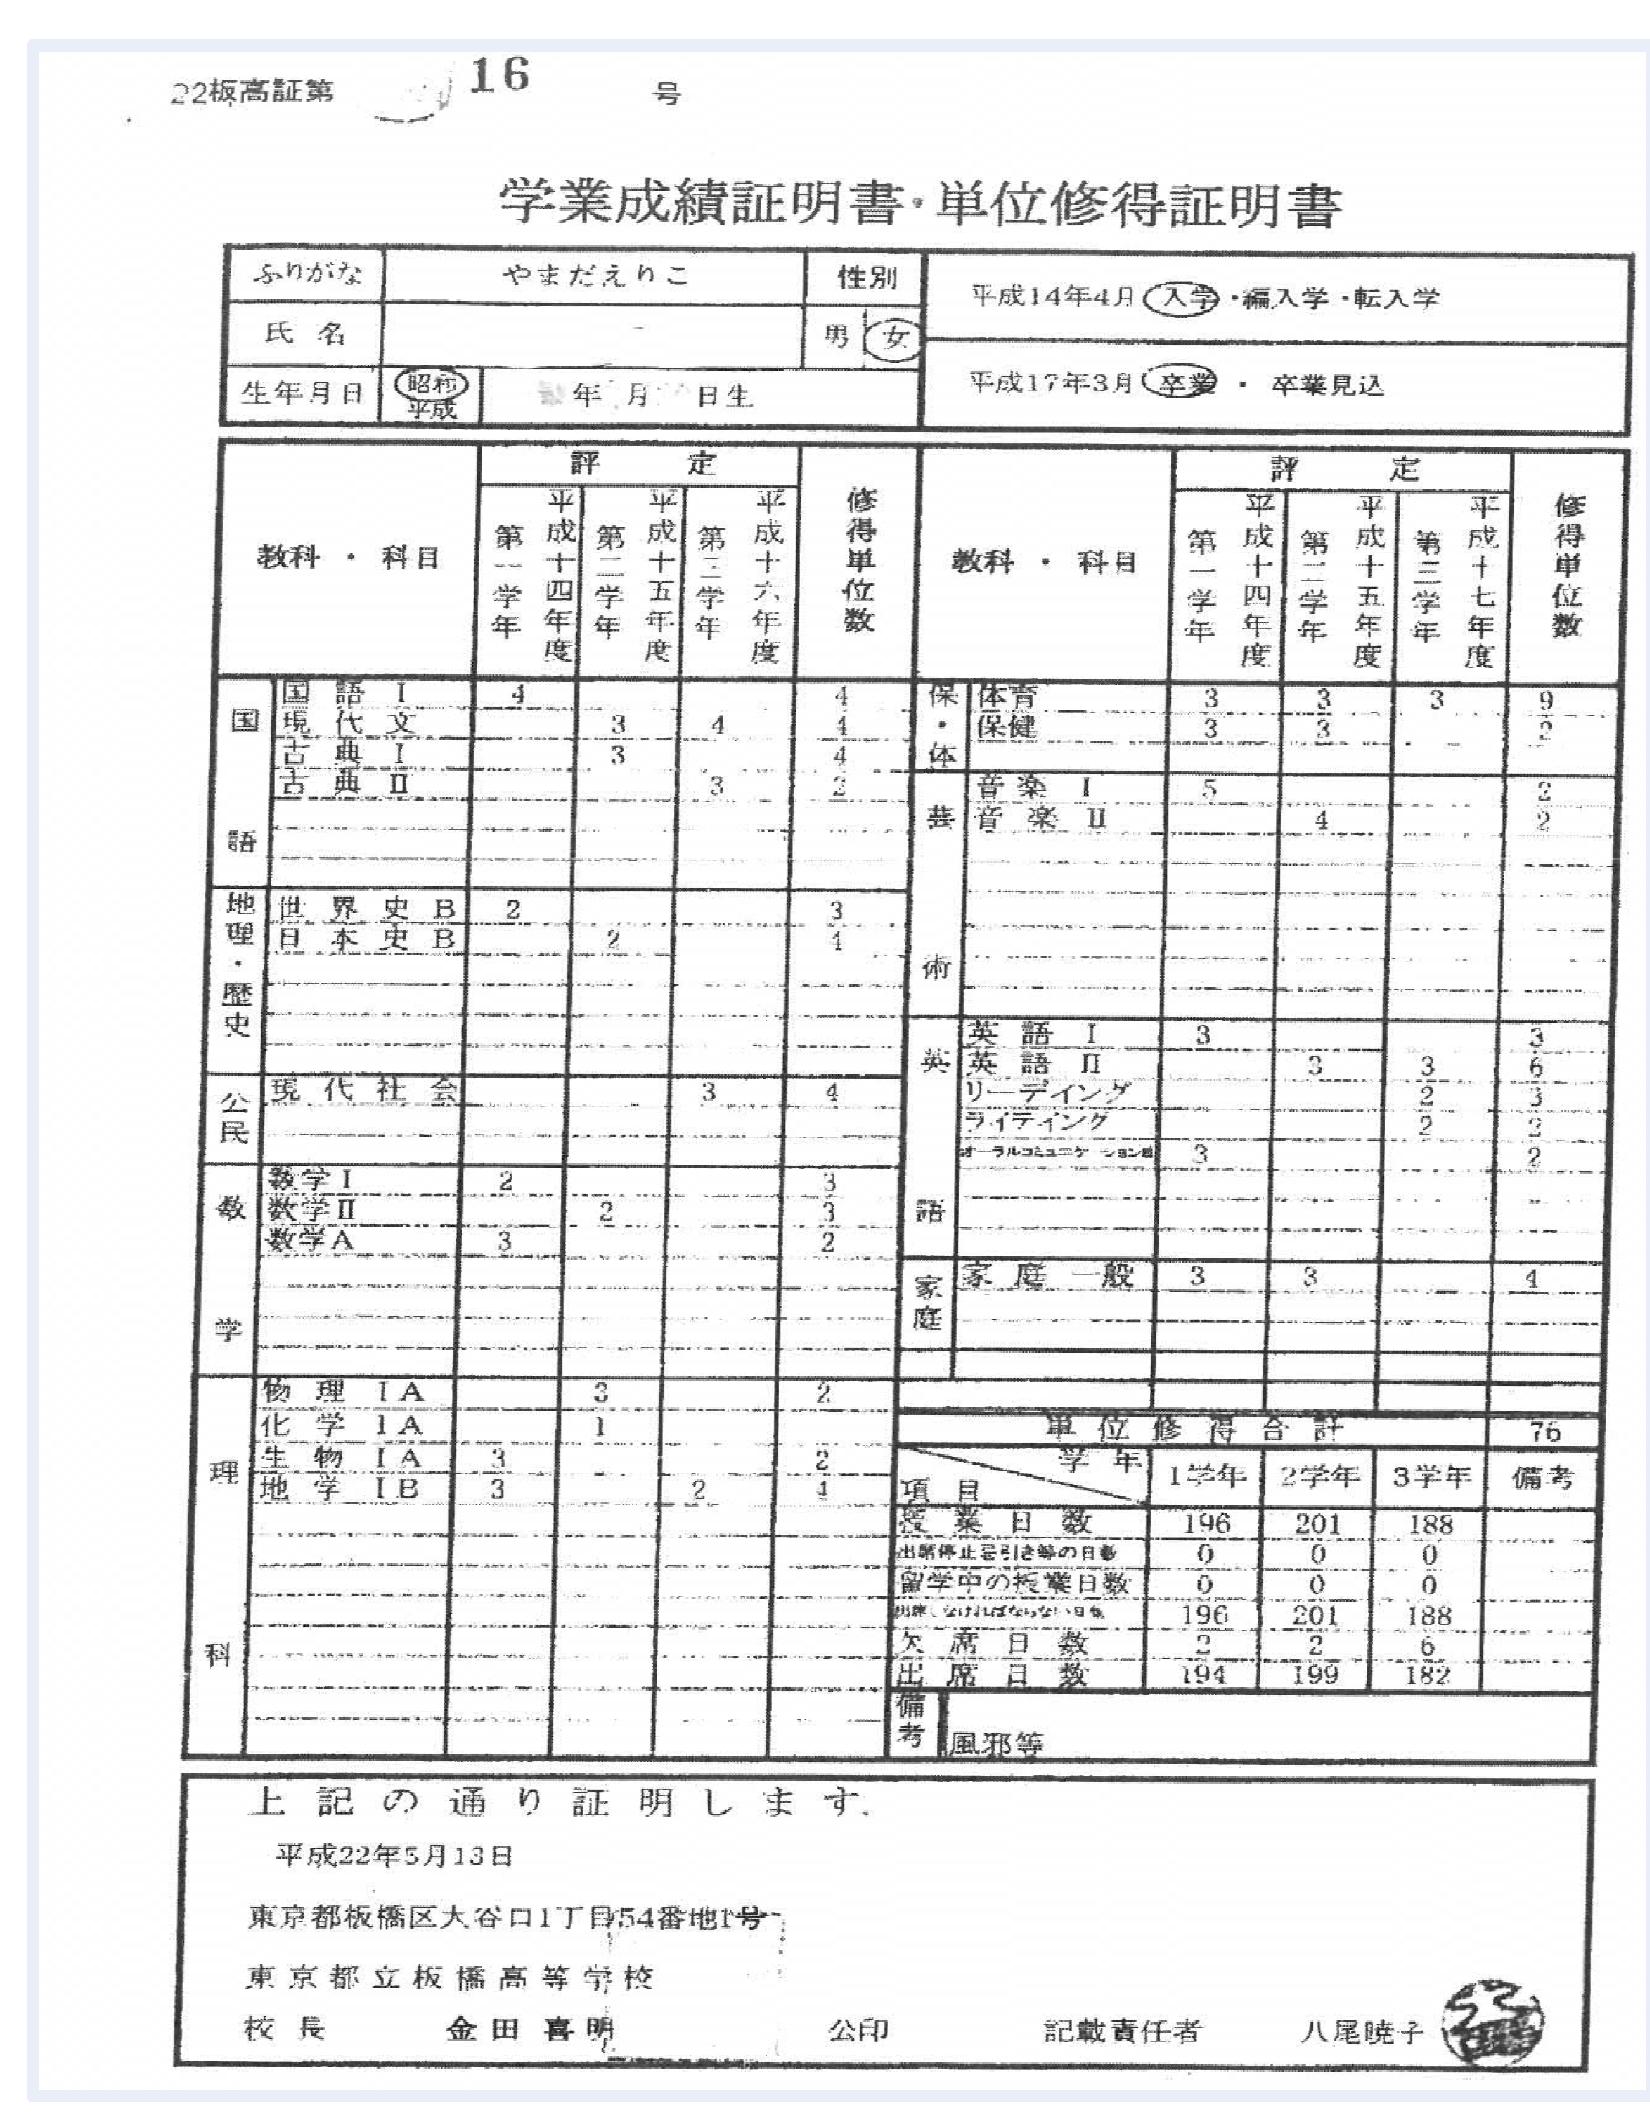 22板高証第 16 号
学業成績証明書・単位修得証明書
ふりがな やまだえりこ 性別
平成14年4月 入学・編入学・転入学
氏 名 男 女
平成17年3月 卒業 ・ 卒業見込
生年月日 昭和 平成 年 月 日生
教科 ・ 科目 評 定 修得単位数 教科 ・ 科目 評 定 修得単位数
第一学年 平成十四年度 第二学年 平成十五年度 第三学年 平成十六年度
第一学年 平成十四年度 第二学年 平成十五年度 第三学年 平成十七年度
国語
国 語 I 4 4
現 代 文 3 4 4
古 典 I 3 4
古 典 II 3 2
地理・歴史
世 界 史 B 2 3
日 本 史 B 2 4
公民
現 代 社 会 3 4
数学
数学I 2 3
数学II 2 3
数学A 3 2
理科
物 理 IA 3 2
化 学 IA 1
生 物 IA 3 2
地 学 IB 3 2 4
保・体
体育 3 3 3 9
保健 3 3 2
芸術
音 楽 I 5 2
音 楽 II 4 2
英語
英 語 I 3 3
英 語 II 3 3 6
リーデイング 2 3
ライティング 2 2
オーラルコミュニケーション 3 2
家庭
家 庭 一般 3 3 4
単 位 修 得 合 計 76
項 目 学 年 1学年 2学年 3学年 備考
授 業 日 数 196 201 188
出席停止忌引き等の日数 0 0 0
留学中の授業日数 0 0 0
出席しなければならない日数 196 201 188
欠 席 日 数 2 2 6
出 席 日 数 194 199 182
備考 風邪等
上 記 の 通 り 証 明 し ま す.
平成22年5月13日
東京都板橋区大谷口1丁目54番地1号
東京都立板橋高等学校
校 長 金田喜明 公印 記載責任者 八尾暁子